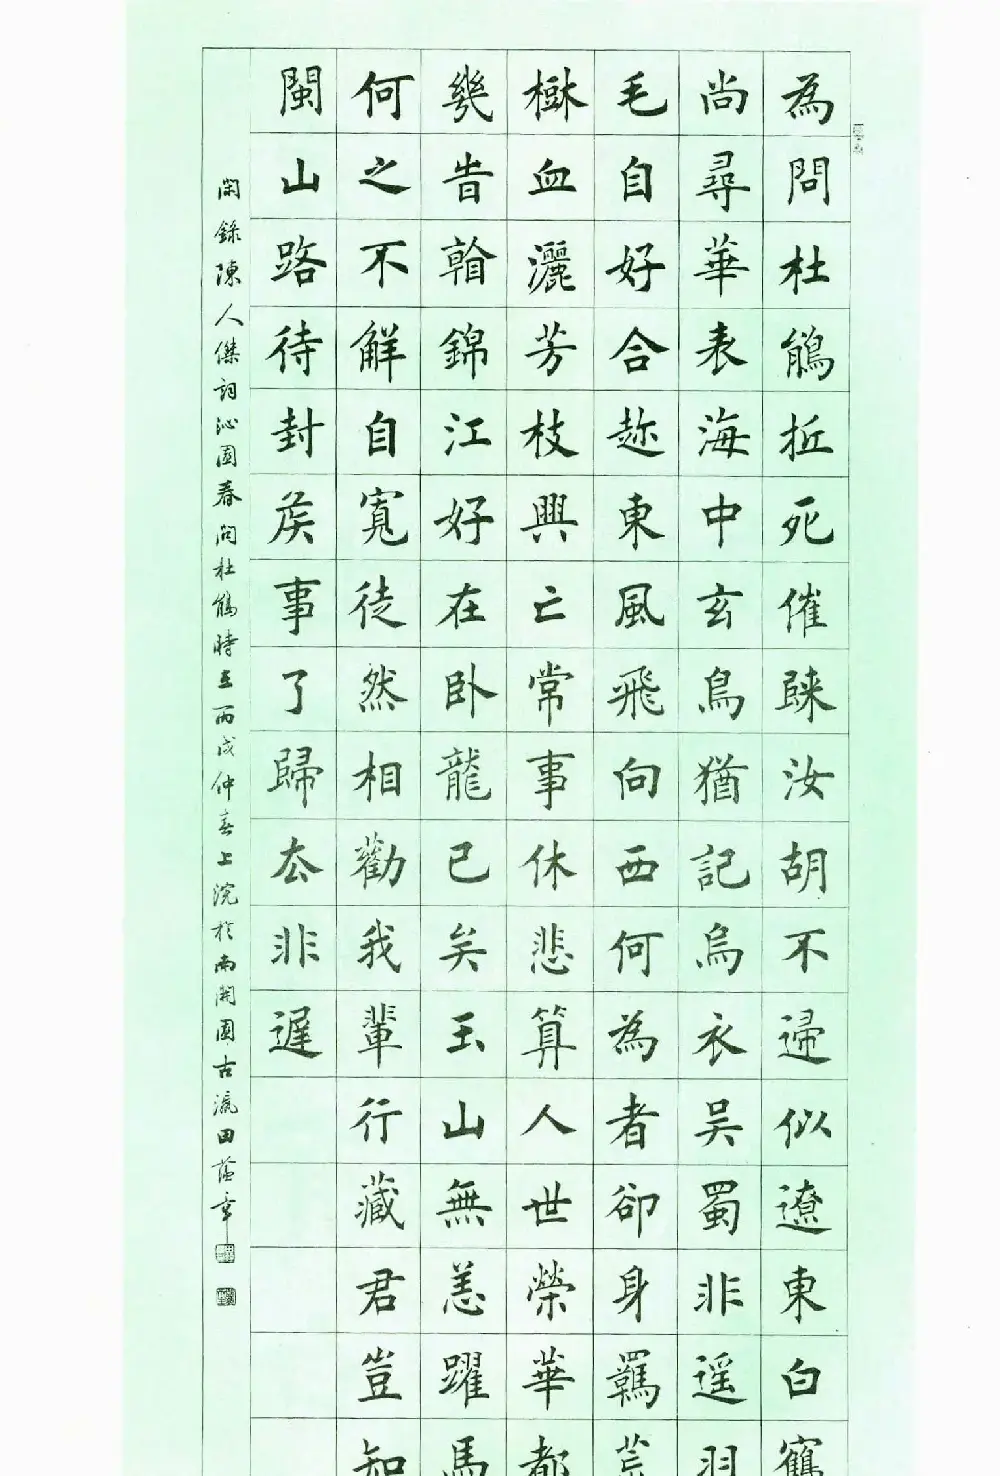 為問杜鵑抵死催歸汝胡不歸似遼東白鶴
尚尋華表海中玄鳥猶記烏衣吳蜀非遥羽
毛自好合趂東風飛向西何為者卻身羈荒
樹血灑芳枝興亡常事休悲算人世榮華都
幾時看錦江好在卧龍已矣玉山無恙躍馬
何之不解自寬徒然相勸我輩行藏君豈知
閩山路待封侯事了歸去非遲
閑錄陳人傑詞沁園春問杜鵑時在丙戌仲春上浣於南開園古瀛田蘊章